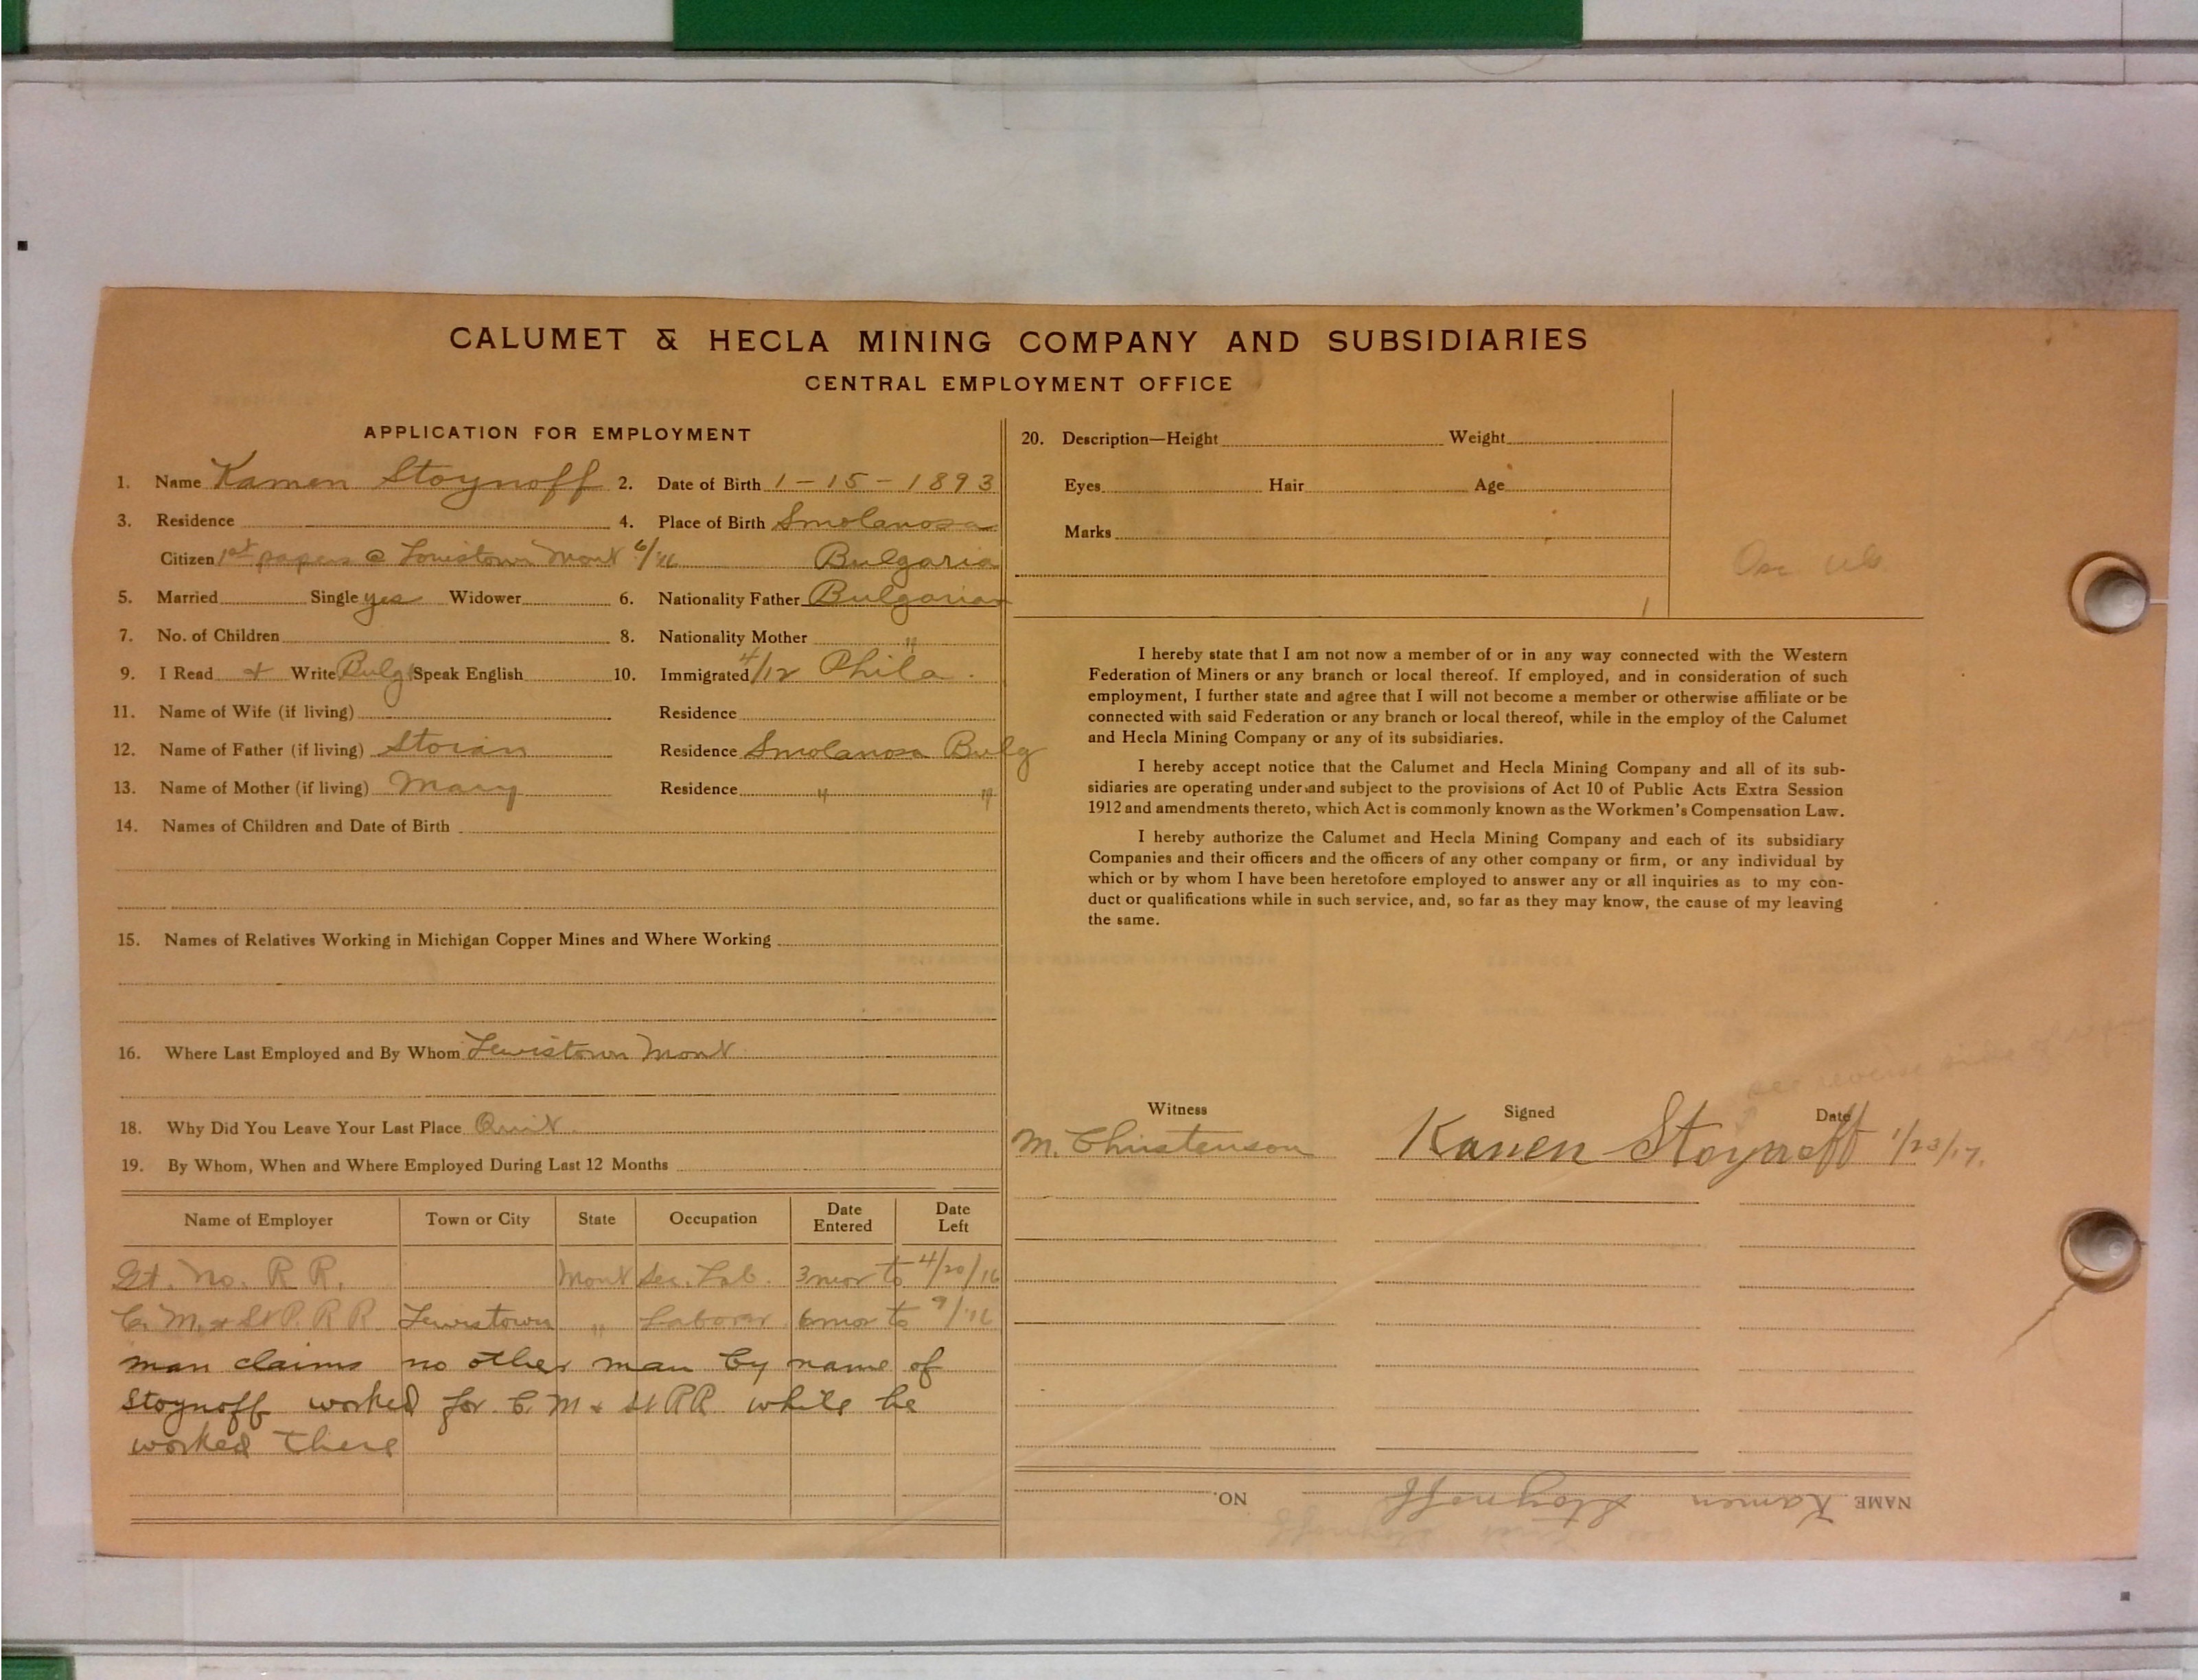 CALUMET & HECLA MINING COMPANY AND SUBSIDIARIES
CENTRAL EMPLOYMENT OFFICE
APPLICATION FOR EMPLOYMENT
1. Name Kamen Stoynoff 2. Date of Birth 1-15-1893
3. Residence 4. Place of Birth Smolanosa
Citizen 1st papers @ Lewistown Mont 6/16 Bulgaria
5. Married Single yes Widower 6. Nationality Father Bulgarian
7. No. of Children 8. Nationality Mother "
9. I Read & Write Bulg Speak English 10. Immigrated 4/12 Phila.
11. Name of Wife (if living) Residence
12. Name of Father (if living) Stoian Residence Smolanosa Bulg
13. Name of Mother (if living) Mary Residence " "
14. Names of Children and Date of Birth
15. Names of Relatives Working in Michigan Copper Mines and Where Working
16. Where Last Employed and By Whom Lewistown Mont
18. Why Did You Leave Your Last Place Quit
19. By Whom, When and Where Employed During Last 12 Months
Name of Employer Town or City State Occupation Date Entered Date Left
Gt. No. R R. Mont Sec. Lab. 3 mos to 4/20/16
C. M. & St P. R R Lewistown " Laborer 6 mos to 9/16
man claims no other man by name of
Stoynoff worked for C. M & St RR while he
worked there
20. Description—Height Weight
Eyes Hair Age
Marks
I hereby state that I am not now a member of or in any way connected with the Western
Federation of Miners or any branch or local thereof. If employed, and in consideration of such
employment, I further state and agree that I will not become a member or otherwise affiliate or be
connected with said Federation or any branch or local thereof, while in the employ of the Calumet
and Hecla Mining Company or any of its subsidiaries.
I hereby accept notice that the Calumet and Hecla Mining Company and all of its sub-
sidiaries are operating under and subject to the provisions of Act 10 of Public Acts Extra Session
1912 and amendments thereto, which Act is commonly known as the Workmen's Compensation Law.
I hereby authorize the Calumet and Hecla Mining Company and each of its subsidiary
Companies and their officers and the officers of any other company or firm, or any individual by
which or by whom I have been heretofore employed to answer any or all inquiries as to my con-
duct or qualifications while in such service, and, so far as they may know, the cause of my leaving
the same.
see reverse side of
Witness Signed Date
M. Christenson Kanen Stoynoff 1/23/17.
NAME Kamen Stoynoff NO.